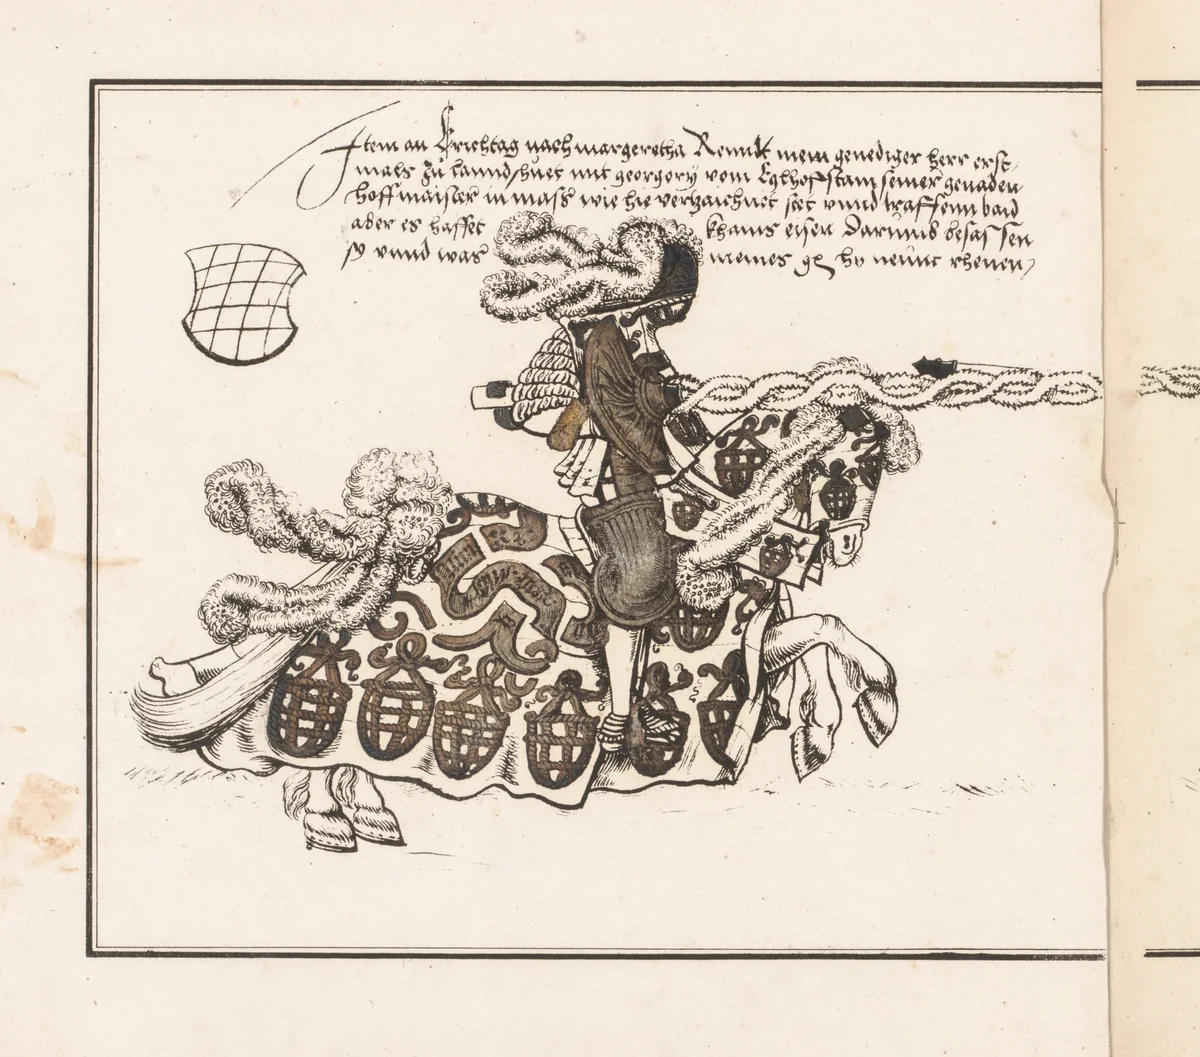 Item an Erichtag nach margeretha Rennt mein genediger herr erst-
mals zu lanndshuet mit georgory vom Eglhofstain seiner genaden
hoffmaister in mass wie hie verzaichnet stet vnnd traffenn baid
aber es hafftet khains eisen darumb besassen
sy vnnd was meines g h neunt rhenen